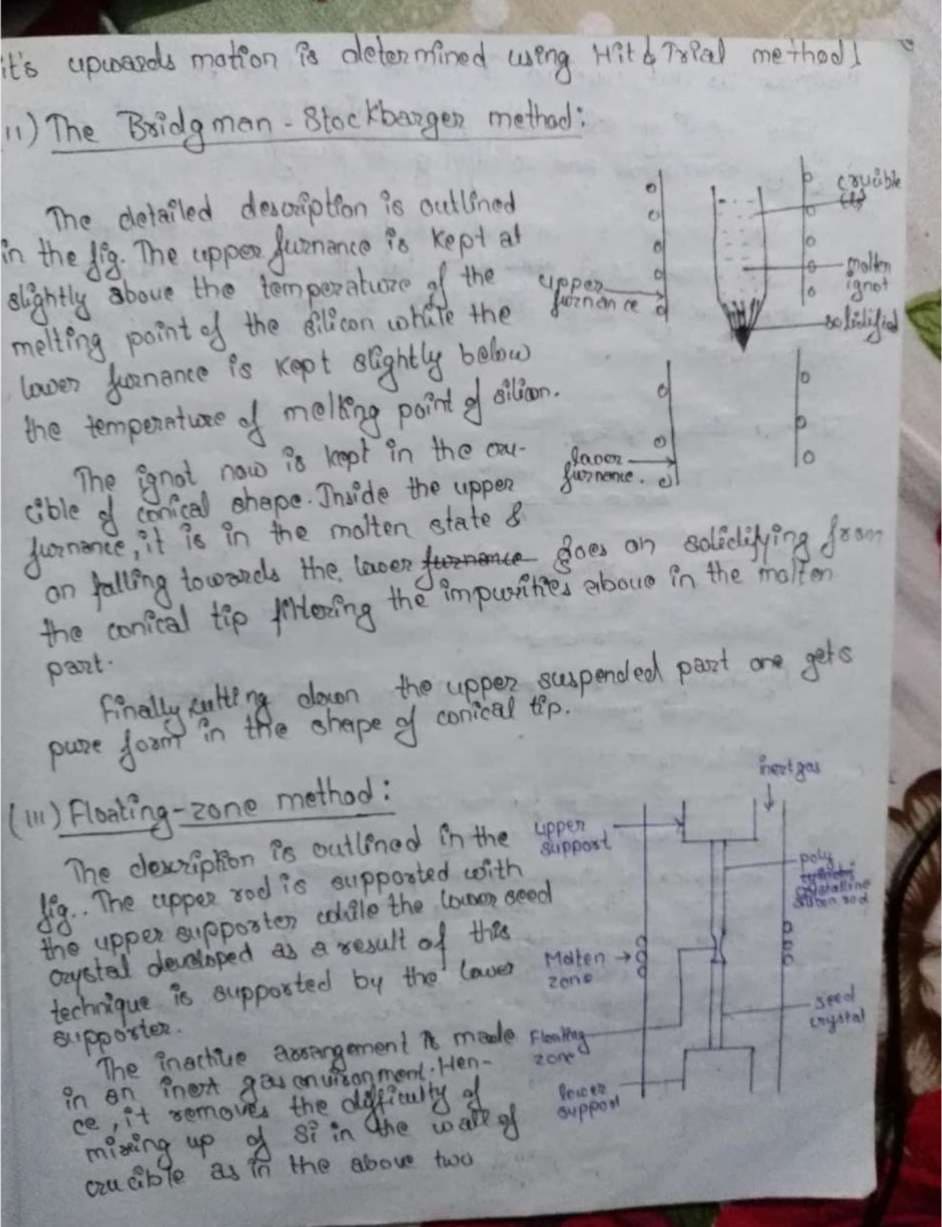 it's upwards motion is determined using Hit & Trial method!
(ii) The Bridgman-Stockbarger method:
The detailed description is outlined
in the fig. The upper furnance is kept at
slightly above the temperature of the
melting point of the silicon while the
lower furnance is kept slightly below
the temperature of melting point of silicon.
The ignot now is kept in the cru-
cible of conical shape. Inside the upper
furnance, it is in the molten state &
on falling towards the lower furnance goes on solidifying from
the conical tip filtering the impurities above in the molten
part.
Finally cutting down the upper suspended part one gets
pure form in the shape of conical tip.
crucible
molten
ignot
solidified
upper
furnance
lower
furnance.
(iii) Floating-zone method:
The description is outlined in the
fig.. The upper rod is supported with
the upper supporter while the lower seed
crystal developed as a result of this
technique is supported by the lower
supporter.
The inactive arrangement is made
in an inert gas environment. Hen-
ce, it removes the difficulty of
mixing up of Si in the wall of
crucible as in the above two
inert gas
upper
support
poly
crystalline
silicon rod
Molten
zone
seed
crystal
Floating
zone
lower
support